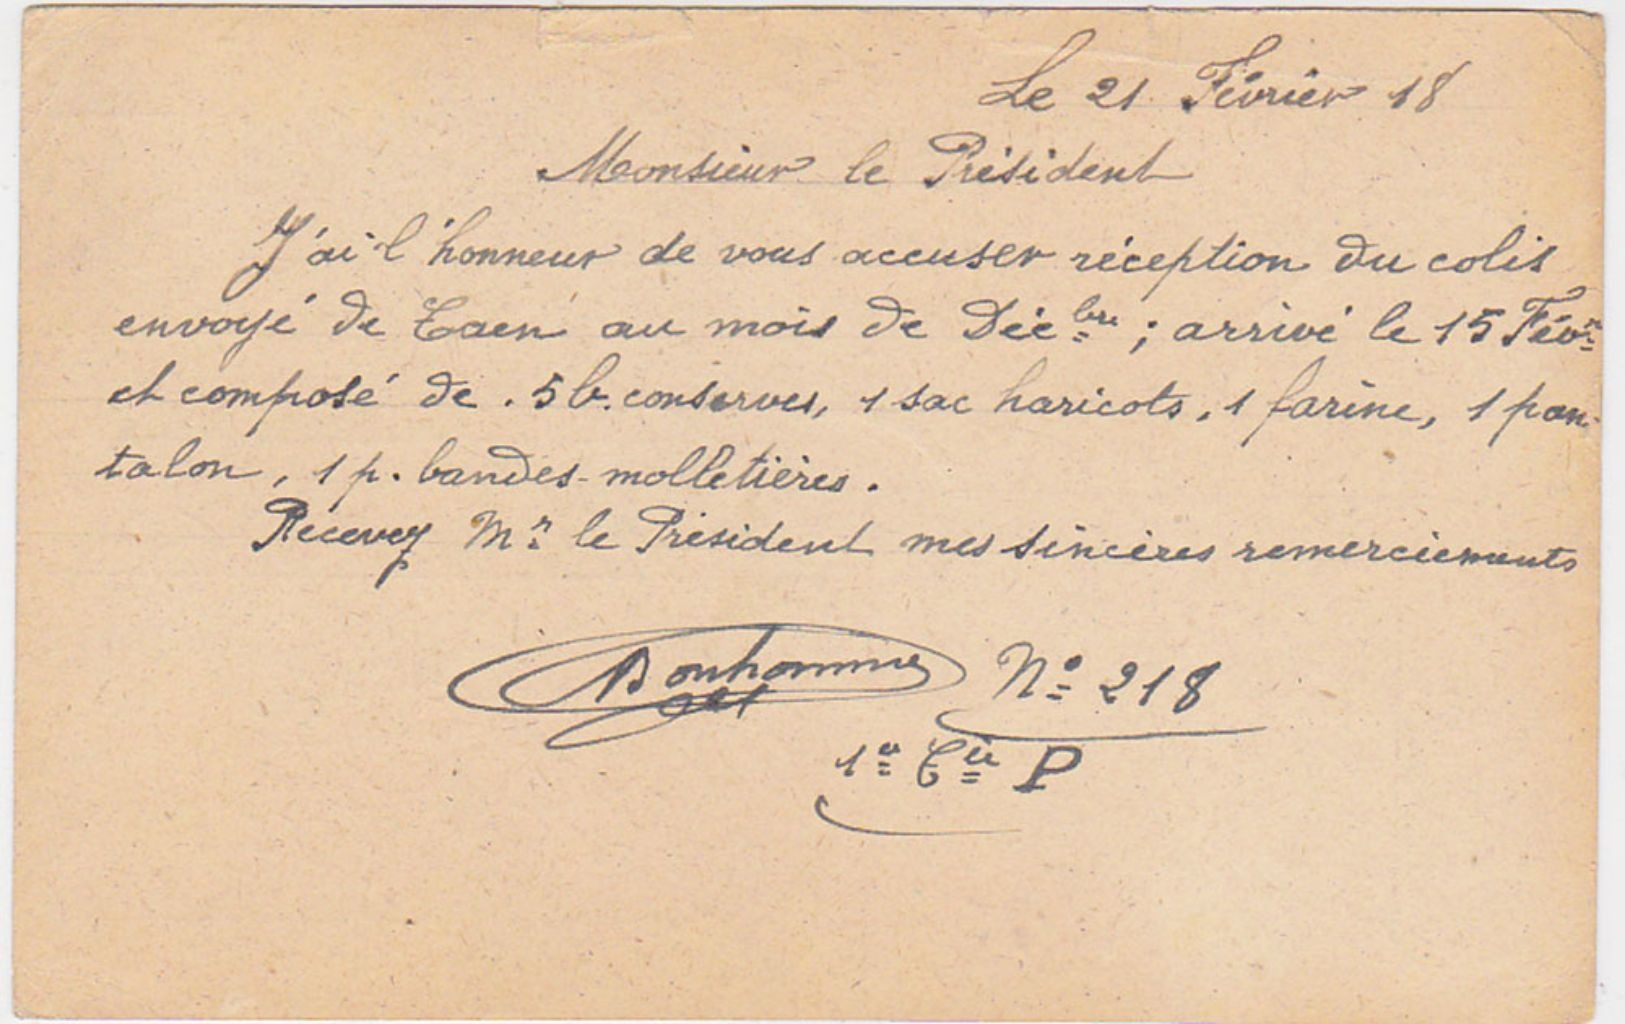 Le 21 Février 18
Monsieur le Président
J'ai l'honneur de vous accuser réception du colis
envoyé de Caen au mois de Déc bre ; arrivé le 15 Févr
et composé de . 5 b. conserves, 1 sac haricots, 1 farine, 1 pan-
talon, 1 p. bandes-molletières.
Recevez Mr le Président mes sincères remerciements
Bonhomme No 218
1e Cie P